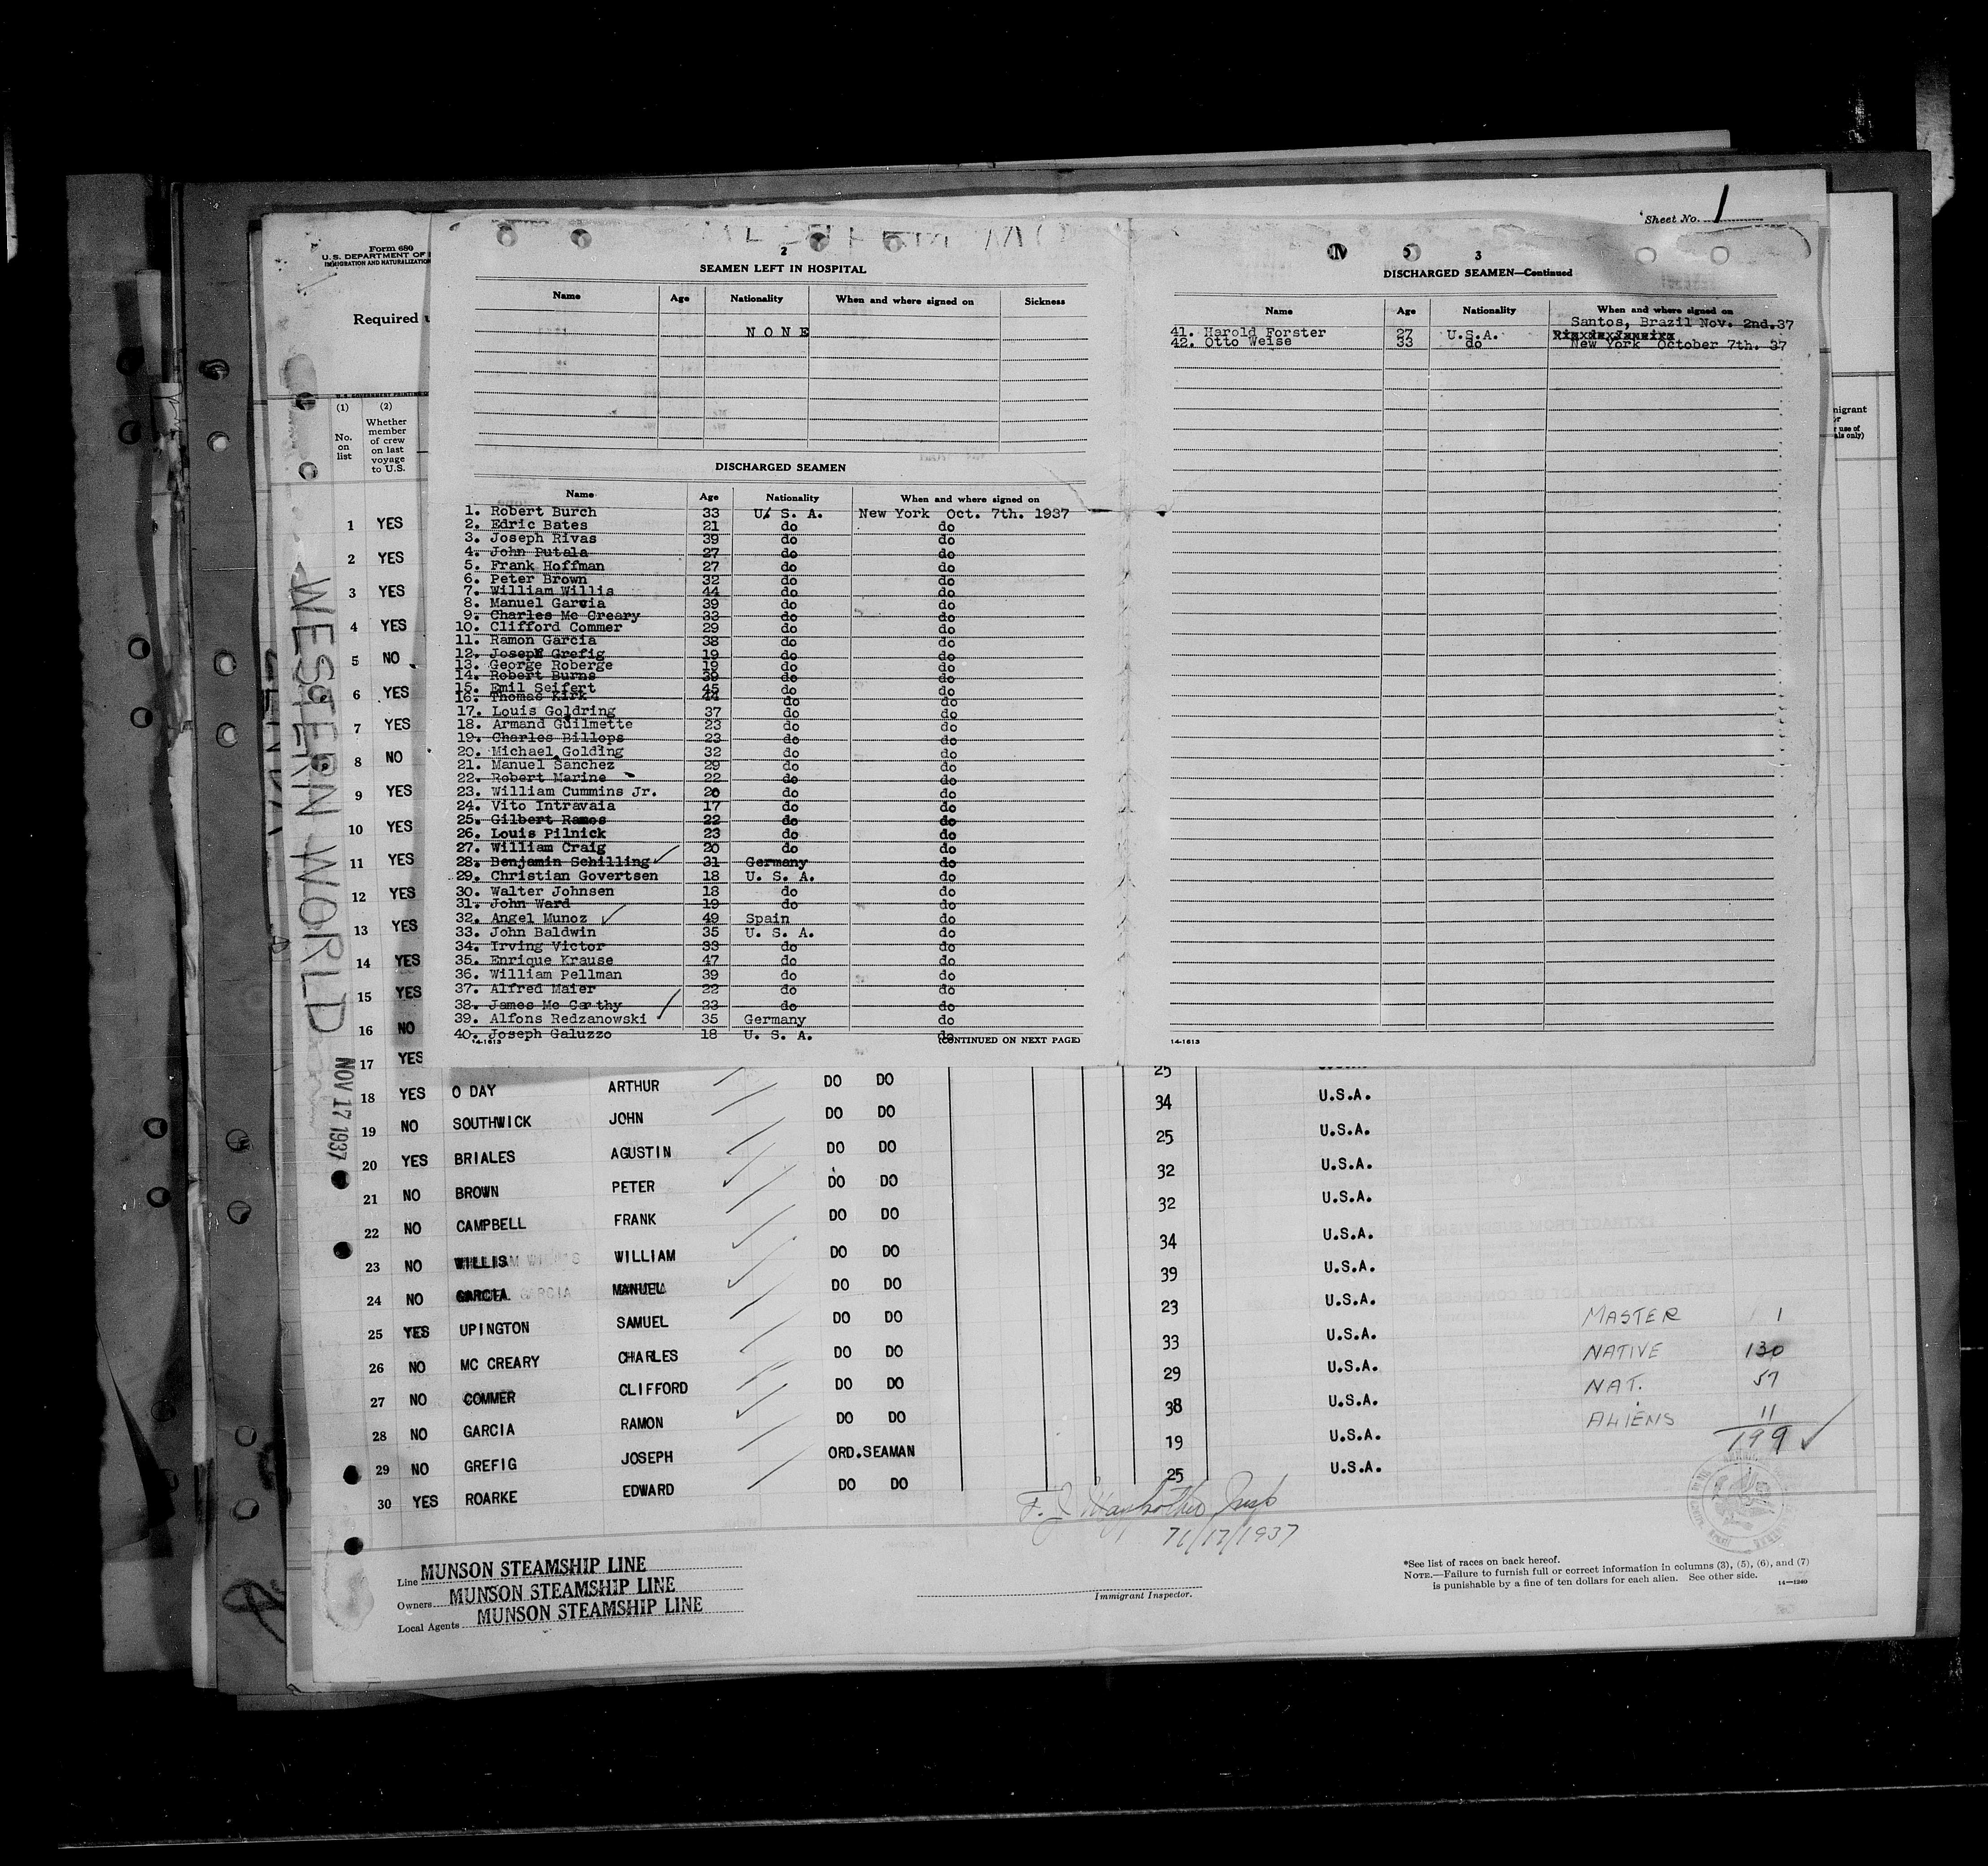 Sheet No. 1
Form 680
U.S. DEPARTMENT OF
IMMIGRATION AND NATURALIZATION
Required
(1) (2)
No. on list
Whether member of crew on last voyage to U.S.
WESTERN WORLD
NOV 17 1937
2
SEAMEN LEFT IN HOSPITAL
Name Age Nationality When and where signed on Sickness
NONE
DISCHARGED SEAMEN
Name Age Nationality When and where signed on
1. Robert Burch 33 U. S. A. New York Oct. 7th. 1937
2. Edric Bates 21 do do
3. Joseph Rivas 39 do do
4. John Putala 27 do do
5. Frank Hoffman 27 do do
6. Peter Brown 32 do do
7. William Willis 44 do do
8. Manuel Garcia 39 do do
9. Charles Mc Creary 33 do do
10. Clifford Commer 29 do do
11. Ramon Garcia 38 do do
12. Joseph Grefig 19 do do
13. George Roberge 19 do do
14. Robert Burns 39 do do
15. Emil Seifert 45 do do
16. Thomas Kirk 44 do do
17. Louis Goldring 37 do do
18. Armand Guilmette 23 do do
19. Charles Billops 23 do do
20. Michael Golding 32 do do
21. Manuel Sanchez 29 do do
22. Robert Marine 22 do do
23. William Cummins Jr. 20 do do
24. Vito Intravaia 17 do do
25. Gilbert Ramos 22 do do
26. Louis Pilnick 23 do do
27. William Craig 20 do do
28. Benjamin Schilling 31 Germany do
29. Christian Govertsen 18 U. S. A. do
30. Walter Johnsen 18 do do
31. John Ward 19 do do
32. Angel Munoz 49 Spain do
33. John Baldwin 35 U. S. A. do
34. Irving Victor 33 do do
35. Enrique Krause 47 do do
36. William Pellman 39 do do
37. Alfred Maier 22 do do
38. James Mc Carthy 23 do do
39. Alfons Redzanowski 35 Germany do
40. Joseph Galuzzo 18 U. S. A. do
14-1613 (CONTINUED ON NEXT PAGE)
3
DISCHARGED SEAMEN—Continued
Name Age Nationality When and where signed on
Santos, Brazil Nov. 2nd.37
41. Harold Forster 27 U.S.A.
42. Otto Weise 33 do New York October 7th. 37
14-1613
1 YES
2 YES
3 YES
4 YES
5 NO
6 YES
7 YES
8 NO
9 YES
10 YES
11 YES
12 YES
13 YES
14 YES
15 YES
16 NO
17 YES 25
18 YES O DAY ARTHUR DO DO 34 U.S.A.
19 NO SOUTHWICK JOHN DO DO 25 U.S.A.
20 YES BRIALES AGUSTIN DO DO 32 U.S.A.
21 NO BROWN PETER DO DO 32 U.S.A.
22 NO CAMPBELL FRANK DO DO 34 U.S.A.
23 NO WILLIS WILLIAM DO DO 39 U.S.A.
24 NO GARCIA MANUEL DO DO 23 U.S.A.
25 YES UPINGTON SAMUEL DO DO 33 U.S.A.
26 NO MC CREARY CHARLES DO DO 29 U.S.A.
27 NO COMMER CLIFFORD DO DO 38 U.S.A.
28 NO GARCIA RAMON DO DO 19 U.S.A.
29 NO GREFIG JOSEPH ORD.SEAMAN 25 U.S.A.
30 YES ROARKE EDWARD DO DO
MASTER 1
NATIVE 130
NAT. 57
ALIENS 11
199
Line MUNSON STEAMSHIP LINE
Owners MUNSON STEAMSHIP LINE
Local Agents MUNSON STEAMSHIP LINE
Immigrant Inspector.
*See list of races on back hereof.
NOTE.—Failure to furnish full or correct information in columns (3), (5), (6), and (7)
is punishable by a fine of ten dollars for each alien. See other side.
14—1240